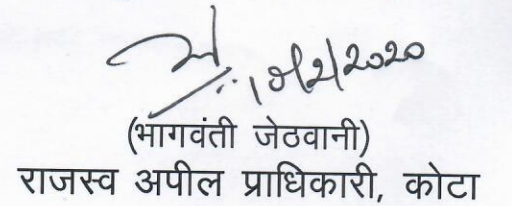 10/2/2020
(भागवंती जेठवानी)
राजस्व अपील प्राधिकारी, कोटा